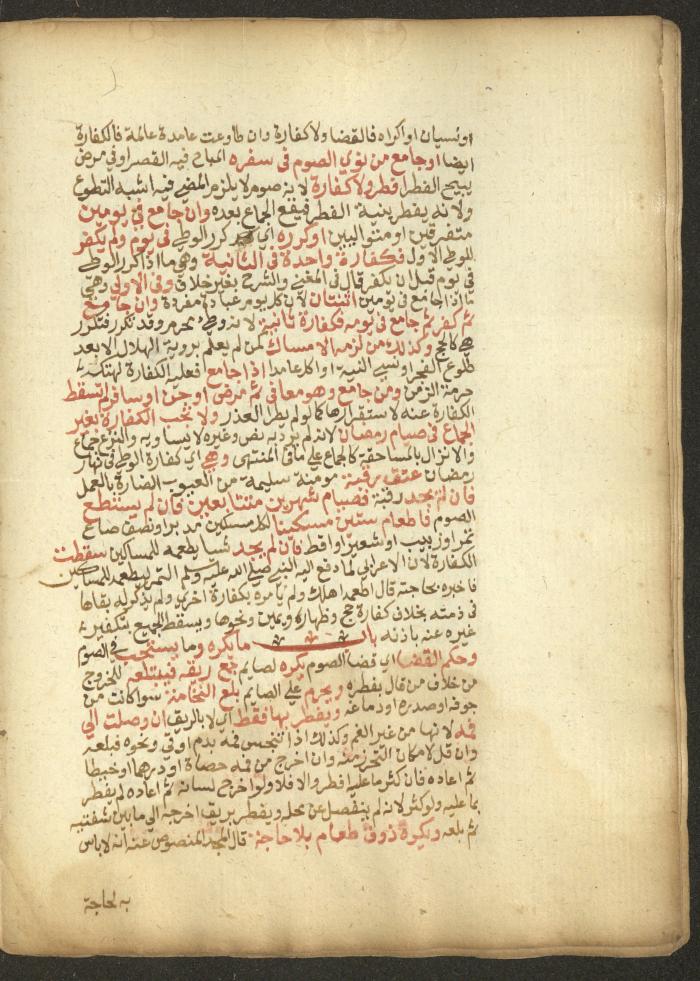 او نسيان او اكراه فالقضا ولا كفارة وان طاوعت عامدة عالمة فالكفارة
ايضا او جامع من نوى الصوم في سفره المباح فيه القصر او في مرض
يبيح الفطر افطر ولا كفارة لانه صوم لا يلزم المضي فيه اشبه التطوع
ولانه يفطر بنية الفطر فيقع الجماع بعده وان جامع في يومين
متفرقين او متواليين او كرره اي كرر الوطي في يوم ولم يكفر
للوطي الاول فكفارة واحدة في الثانية وهي ما اذا كرر الوطي
في يوم قبل ان يكفر قال في المغني والشرح بغير خلاف وفي الاولى وهي
ما اذا جامع في يومين اثنتان لان كل يوم عبادة مفردة وان جامع
ثم كفر ثم جامع في يومه فكفارة ثانية لانه وطي محرم وقد تكرر فتكرر
هي كالحج وكذلك من لزمه الامساك كمن لم يعلم بروية الهلال الا بعد
طلوع الفجر او نسي النية او اكل عامدا اذا جامع فعليه الكفارة لهتكه
حرمة الزمن ومن جامع وهو معافى ثم مرض او جن او سافر لم تسقط
الكفارة عنه لاستقرارها كما لو لم يطرا العذر ولا تجب الكفارة بغير
الجماع في صيام رمضان لانه لم يرد به نص وغيره لا يساويه والنزع جماع
والانزال بالمساحقة كالجماع على ما في المنتهى وهي اي كفارة الوطي في نهار
رمضان عتق رقبة مومنة سليمة من العيوب الضارة بالعمل
فان لم يجد رقبة فصيام شهرين متتابعين فان لم يستطع
الصوم فاطعام ستين مسكينا لكل مسكين مد بر او نصف صاع
تمر او زبيب او شعير او اقط فان لم يجد شيا يطعمه للمساكين سقطت
الكفارة لان الاعرابي لما دفع اليه النبي صلى الله عليه وسلم التمر ليطعمه للمساكين
فاخبره بحاجته قال اطعمه اهلك ولم يامره بكفارة اخرى ولم يذكر له بقاها
في ذمته بخلاف كفارة حج وظهار ويمين ونحوها ويسقط الجميع بتكفير
غيره عنه باذنه باب ما يكره وما يستحب في الصوم
وحكم القضا اي قضا الصوم يكره لصايم جمع ريقه فيبتلعه للخروج
من خلاف من قال بفطره ويحرم على الصايم بلع النخامة سوا كانت من
جوفه او صدره او دماغه ويفطر بها فقط اي لا بالريق ان وصلت الى
فمه لانها من غير الفم وكذلك اذا تنجس فمه بدم او قي ونحوه فبلعه
وان قل لامكان التحرز منه وان اخرج من فمه حصاة او درهما او خيطا
ثم اعاده فان كثر ما عليه افطر والا فلا ولو اخرج لسانه ثم اعاده لم يفطر
بما عليه ولو كثر لانه لم ينفصل عن محله ويفطر بريق اخرجه الى ما بين شفتيه
ثم بلعه ويكره ذوق طعام بلا حاجة قال المجد المنصوص عنه انه لا باس
به لحاجة